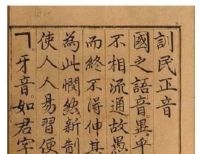 訓民正音
國之語音異乎
不相流通故愚
而終不得伸其
為此憫然新制
使人人易習便
ㄱ牙音如君字